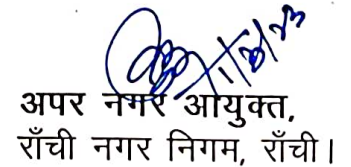 अपर नगर आयुक्त,
राँची नगर निगम, राँची।